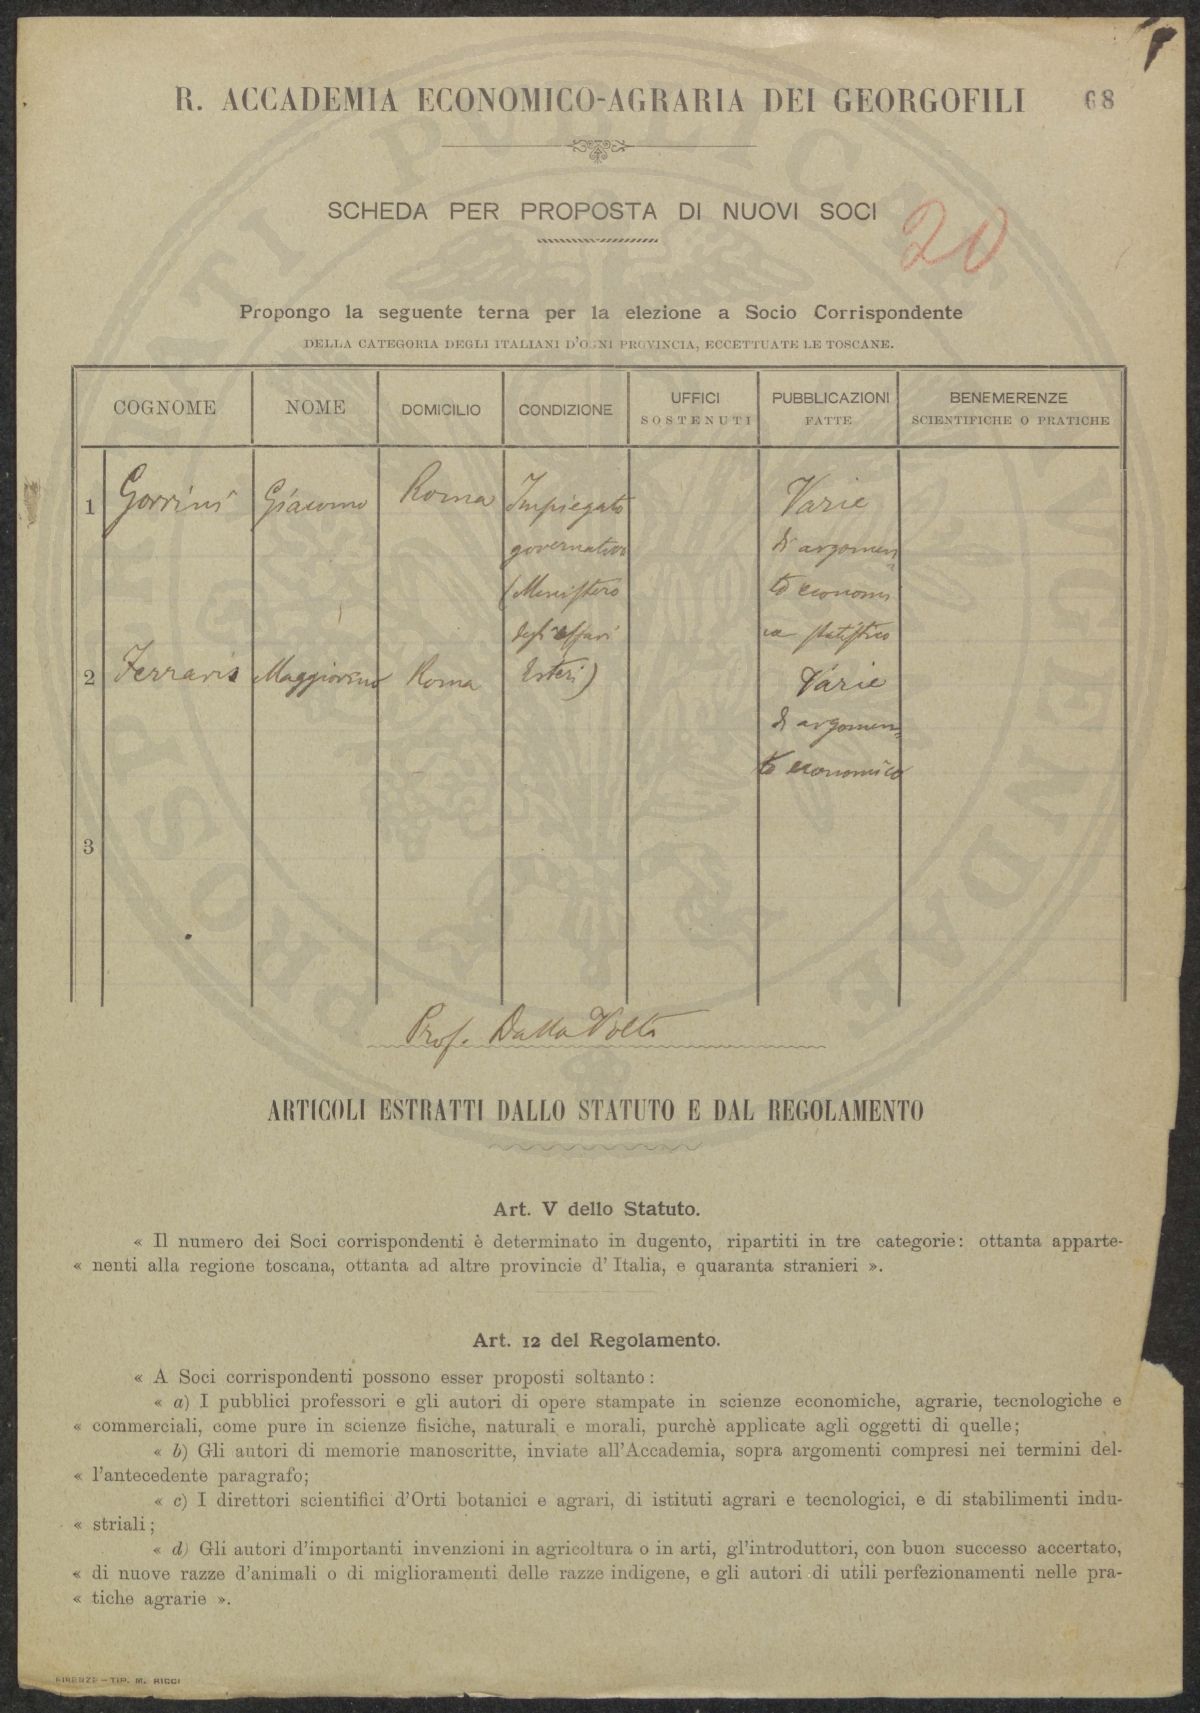 R. ACCADEMIA ECONOMICO-AGRARIA DEI GEORGOFILI
68
SCHEDA PER PROPOSTA DI NUOVI SOCI
20
Propongo la seguente terna per la elezione a Socio Corrispondente
DELLA CATEGORIA DEGLI ITALIANI D'OGNI PROVINCIA, ECCETTUATE LE TOSCANE.
COGNOME NOME DOMICILIO CONDIZIONE UFFICI SOSTENUTI PUBBLICAZIONI FATTE BENEMERENZE SCIENTIFICHE O PRATICHE
1 Gorrini Giacomo Roma Impiegato Varie
governativo di argomen
(Ministero to economi
degli affari co statistico
2 Ferraris Maggiorino Roma Esteri) Varie
di argomen
to economico
3
Prof. Dalla Volta
ARTICOLI ESTRATTI DALLO STATUTO E DAL REGOLAMENTO
Art. V dello Statuto.
« Il numero dei Soci corrispondenti è determinato in dugento, ripartiti in tre categorie: ottanta apparte-
« nenti alla regione toscana, ottanta ad altre provincie d'Italia, e quaranta stranieri ».
Art. 12 del Regolamento.
« A Soci corrispondenti possono esser proposti soltanto:
« a) I pubblici professori e gli autori di opere stampate in scienze economiche, agrarie, tecnologiche e
« commerciali, come pure in scienze fisiche, naturali e morali, purchè applicate agli oggetti di quelle;
« b) Gli autori di memorie manoscritte, inviate all'Accademia, sopra argomenti compresi nei termini del-
« l'antecedente paragrafo;
« c) I direttori scientifici d'Orti botanici e agrari, di istituti agrari e tecnologici, e di stabilimenti indu-
« striali;
« d) Gli autori d'importanti invenzioni in agricoltura o in arti, gl'introduttori, con buon successo accertato,
« di nuove razze d'animali o di miglioramenti delle razze indigene, e gli autori di utili perfezionamenti nelle pra-
« tiche agrarie ».
FIRENZE — TIP. M. RICCI
PROSPERITATI PVBLICAE AVGENDAE